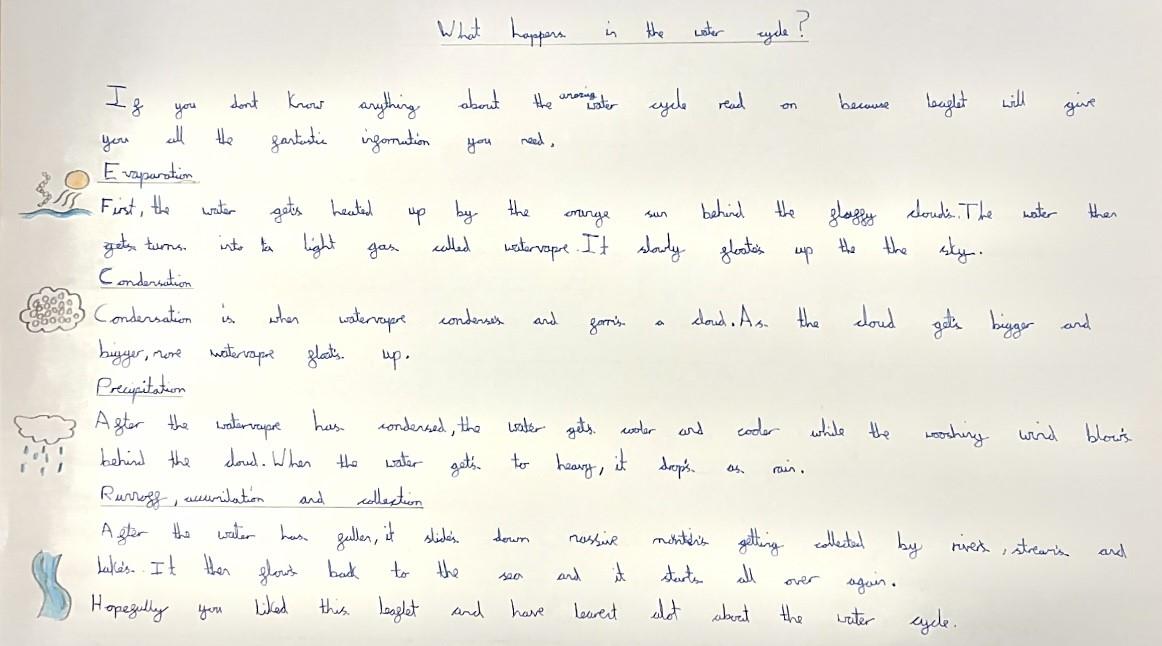 What happens in the water cycle?
If you dont know anything about the amazing water cycle read on because leaflet will give
you all the fantastic information you need.
Evaparation
First, the water gets heated up by the orange sun behind the fluffy clouds. The water then
gets turns into ta light gas called watervapre. It slowly floates up the the sky.
Condensation
Condensation is when watervapre condenses and forms a cloud. As the cloud gets bigger and
bigger, more watervapre floats up.
Precipitation
After the watervapre has condensed, the water gets cooler and cooler while the wooshing wind blows
behind the cloud. When the water gets to heavy, it drops as rain.
Runnoff, accumilation and collection
After the water has fallen, it slides down massive getting collected by rivers, streams and
lakes. It then flows back to the sea and it starts all over again.
Hopefully you liked this leaflet and have learnt alot about the water cycle.